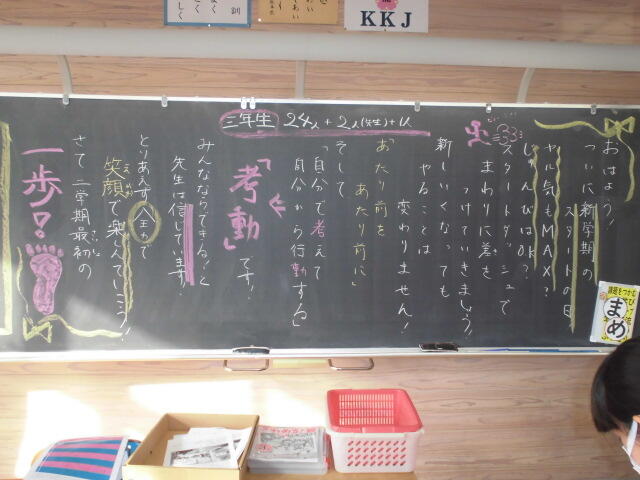 KKJ
三年生 24人+2人(先生)+α
おはよう!
ついに新学期の
スタートの日
ヤル気もMAX?
じゅんびはOK?
スタートダッシュで
まわりに差を
つけていきましょう。
新しいくなっても
やることは
変わりません!
あたり前を
あたり前に
そして
「自分で考えて
自分から行動する」
「考動」です!
みんなならできる!と
先生は信じています!
とりあえず
笑顔で楽しんでいこう!
えがお
さて、二学期最初の
さいしょ
一歩!
まめ